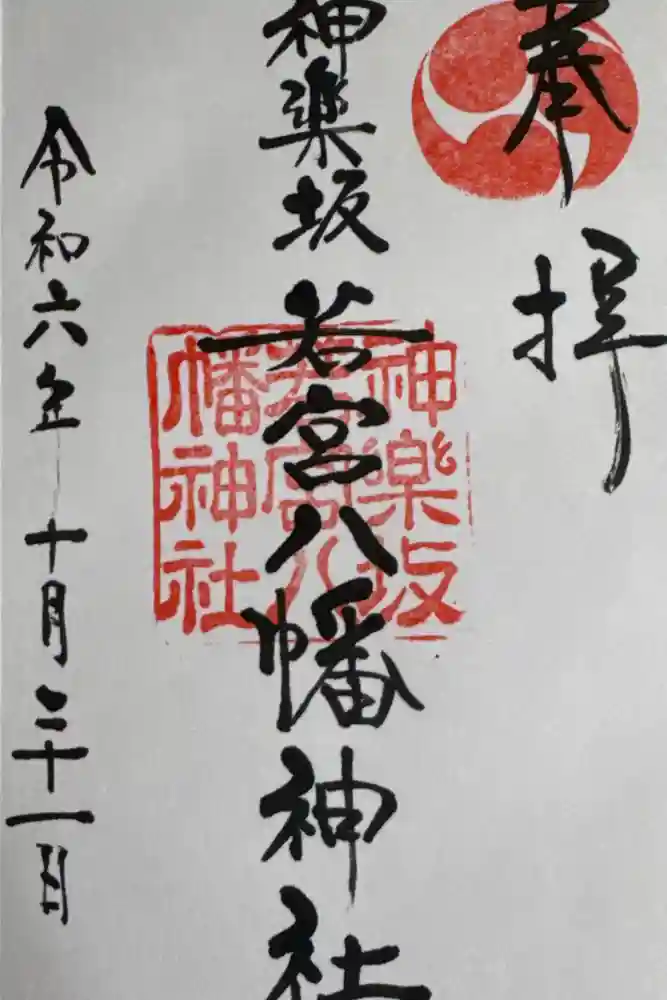 奉拝
神楽坂若宮八幡神社
神楽坂
若宮八
幡神社
令和六年十月三十一日